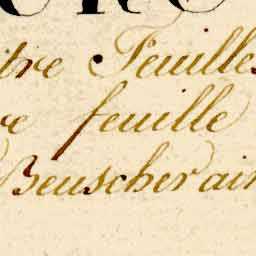 tre Feuilles
re feuille
Beuscher ain